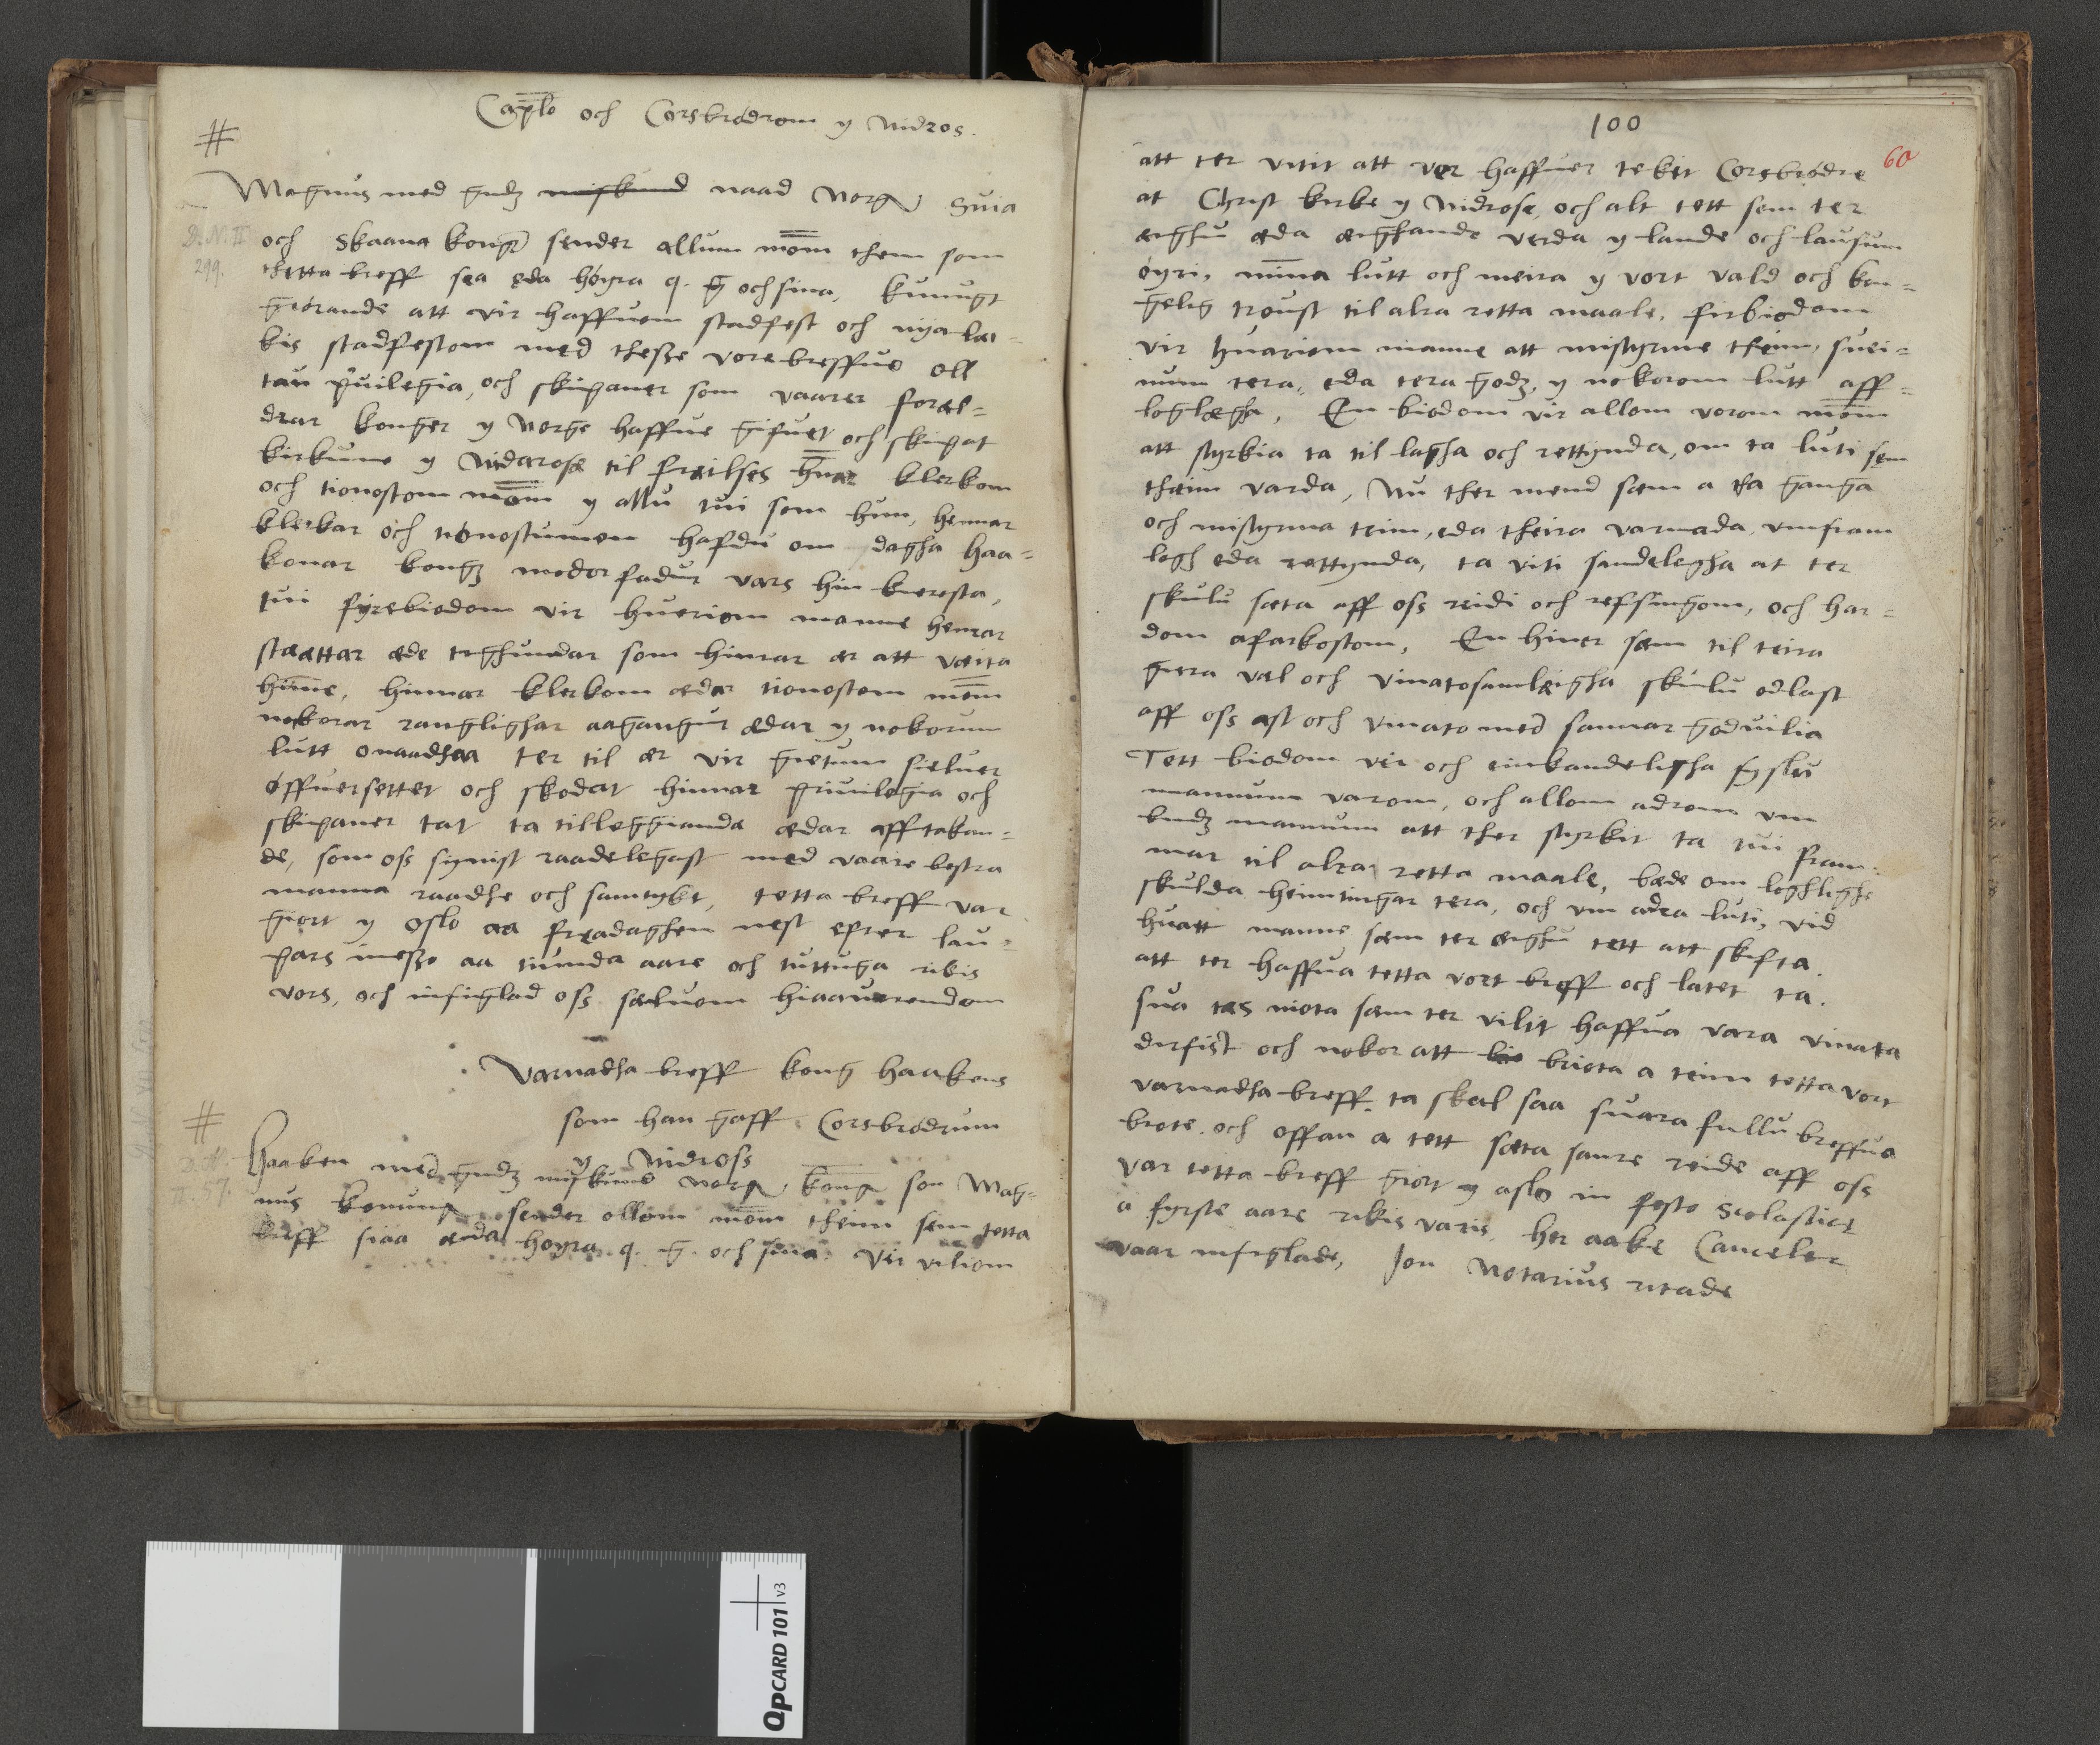 Cap̅lo och Corsbrødrom y Nidros.
#
Magnus med gudz miskund naad Norg Suia
D. N. II
299.
och Skaana kongr sender allum mo̅m them som
thetta breff sea eda høyra q. g ochsina, kunugt
giørande att vir haffuom stadfest och nyia lei=
kis stadfestom med thesse vore breffue oll
tau p̅uilegia, och skipaner som vaarer forel=
drar konger y Norge haffue gifuet och skipat
kirkiune y Nidarose til frailses he̅nar klerkom
och tionostom mo̅m y allu tui som hun, hennar
klerkar och tionostumen hafdu om dagha Haa=
konar kongz moderfadur vars hin kieresta,
tui fyrebiodom vir huoriom manne hennar
staættar æde teghundar som hinnar er att væita
hi̅ne, hinnar klerkom ædar tionostom mo̅m
nokorar ranglighar aagangur ædar y nokorum
lutt onaadhaa ter til ær vir gietum sieluer
øffuersettet och skodat hinnar priuilegia och
skipaner tat ta tilleggianda ædar afftakan=
de, som oss synist raadelegast med vaare bestra
manna raadhe och samtykt, tetta breff var
giort y Oslo aa freadaghen nest epter lau=
pars messo aa tiunda aare och tuttuga rikis
vors, och insiglad oss sæluom hiaauerendom
Varnadha breff kong Haakens
som han gaff Corsbrødrum
y Nidross
#
D. N.
II. 57.
Haaken med gudz miskund Norg kong son Mag=
nus konung sender ollom mo̅m theim sem tetta
breff siaa æda høyra q. g. och sina. Vir viliom
100
60
att ter vitit att ver haffuer tekit Corsbrødre
at Christ kirke y Nidrose, och alt tett sem ter
æighu æda æighande verda y lande och lausum
øyri, mi̅na lutt och meira y vort vald och kon=
gelig troust til alra retta maale, firbiodom
vir huoriom manne att misthyrme theim, suei=
num tera, eda tera godz, y nokorom lutt aff=
loglegha, En biodom vir allom vorom mo̅m
att styrkia ta til lagha och rettynda, om ta luti sem
theim varda, Nu ther mend sæm a tha ganga
och misthyrma teim, eda theira varnada, vmfram
logh eda rettynda, ta viti sandelegha at ter
skulu sæta aff oss reidi och refsingom, och har=
dom afarkostom, En hiner sæm til teira
giera væl och vinatosamleigha skulu odlast
aff oss ast och vinato med sannar goduilia
Tett biodom vir och einkandeligha syslu
mannum varom, och allom adrom vm
budz mannum att ther styrkit ta tui fram=
mar til alra retta maale, bæde om loghlighe
skulda heimtingar tera, och vm adra luti, vid
huatt manne sæm ter æighu tett att skifta.
att ter haffua tetta vort breff och latet ta.
sua tæs niota sæm ter vilit haffua vara vinata
dirfist och nokor att bio briota a teim tetta vort
varnadha breff. ta skal saa suara fullu breffua
brote. och offan a tett sæta sanre reide aff oss
Var tetta breff giort y aslo in festo Scolastice
a fyrste aare rikis varis. her aake Canceler
vaar insiglade, Jon Notarius ritade
QpCARD 101 v3